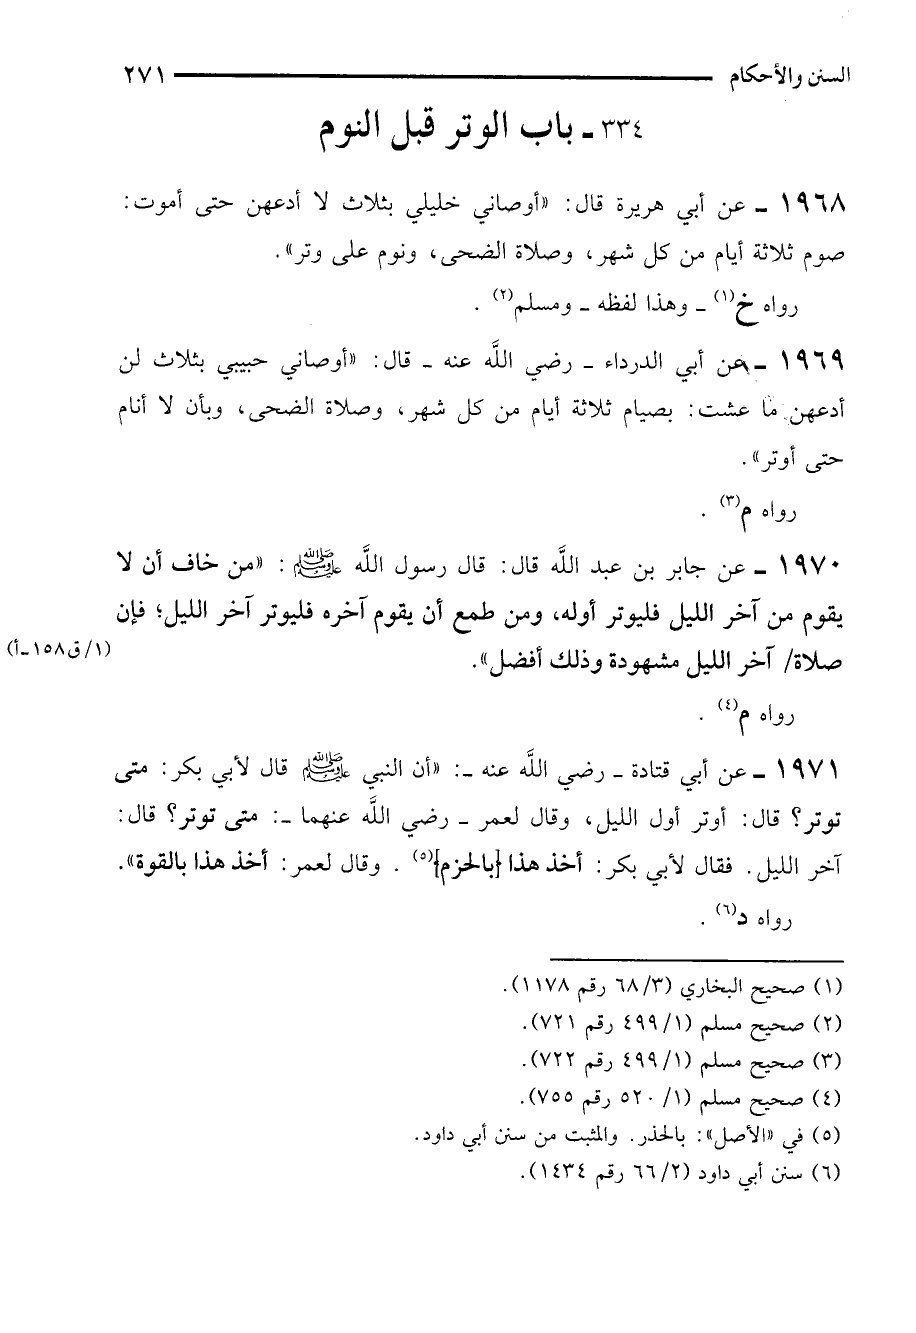 السنن والأحكام ٢٧١
٣٣٤ ـ باب الوتر قبل النوم
١٩٦٨ ـ عن أبي هريرة قال: «أوصاني خليلي بثلاث لا أدعهن حتى أموت:
صوم ثلاثة أيام من كل شهر، وصلاة الضحى، ونوم على وتر».
رواه خ(١) ـ وهذا لفظه ـ ومسلم(٢) .
١٩٦٩ ـ عن أبي الدرداء ـ رضي اللَّه عنه ـ قال: «أوصاني حبيبي بثلاث لن
أدعهن ما عشت: بصيام ثلاثة أيام من كل شهر، وصلاة الضحى، وبأن لا أنام
حتى أوتر».
رواه م(٣) .
١٩٧٠ ـ عن جابر بن عبد اللَّه قال: قال رسول اللَّه ﷺ : «من خاف أن لا
يقوم من آخر الليل فليوتر أوله، ومن طمع أن يقوم آخره فليوتر آخر الليل؛ فإن
صلاة/ آخر الليل مشهودة وذلك أفضل». (١/ق١٥٨-أ)
رواه م(٤) .
١٩٧١ ـ عن أبي قتادة ـ رضي اللَّه عنه ـ: «أن النبي ﷺ قال لأبي بكر: متى
توتر؟ قال: أوتر أول الليل، وقال لعمر ـ رضي اللَّه عنهما ـ: متى توتر؟ قال:
آخر الليل. فقال لأبي بكر: أخذ هذا [بالحزم](٥) . وقال لعمر: أخذ هذا بالقوة».
رواه د(٦) .
(١) صحيح البخاري (٦٨/٣ رقم ١١٧٨).
(٢) صحيح مسلم (٤٩٩/١ رقم ٧٢١).
(٣) صحيح مسلم (٤٩٩/١ رقم ٧٢٢).
(٤) صحيح مسلم (٥٢٠/١ رقم ٧٥٥).
(٥) في «الأصل»: بالحذر. والمثبت من سنن أبي داود.
(٦) سنن أبي داود (٦٦/٢ رقم ١٤٣٤).